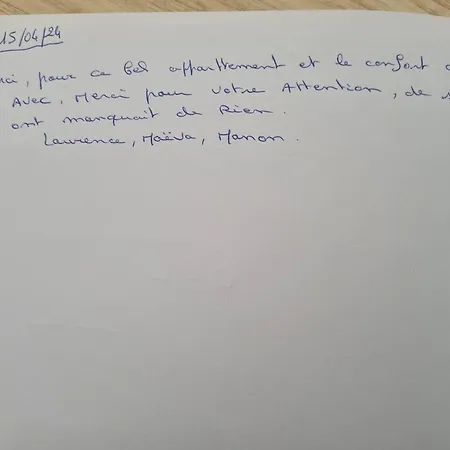 15/04/24
ci, pour ce bel apparttement et le confort
Avec, Merci pour votre Attention, de
ont manquait de Rien.
Laurence, Maëva, Manon.